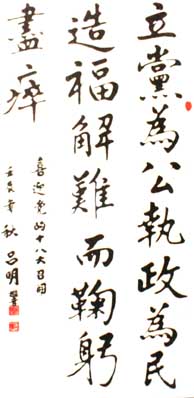 立黨為公執政為民
造福解難而鞠躬
盡瘁
喜迎党的十八大召开
壬辰年秋 吕明